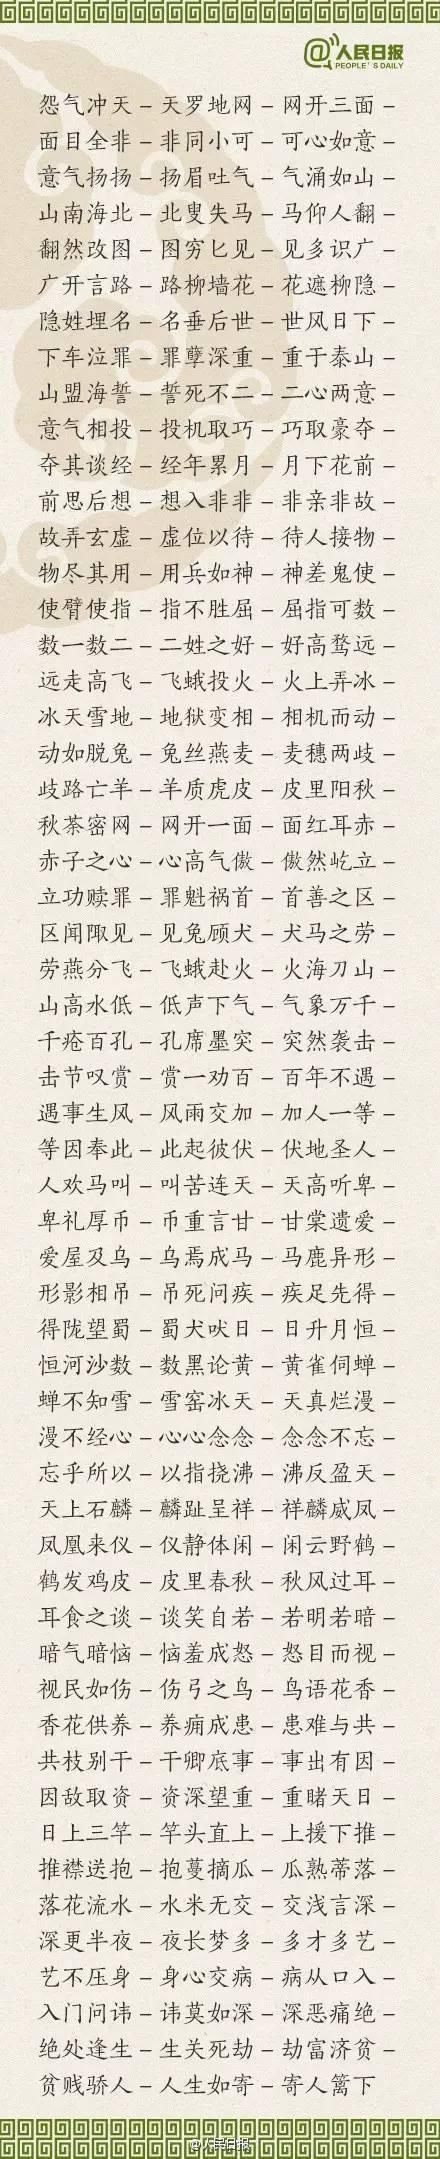 @人民日报
PEOPLE'S DAILY
怨气冲天 – 天罗地网 – 网开三面 –
面目全非 – 非同小可 – 可心如意 –
意气扬扬 – 扬眉吐气 – 气涌如山 –
山南海北 – 北叟失马 – 马仰人翻 –
翻然改图 – 图穷匕见 – 见多识广 –
广开言路 – 路柳墙花 – 花遮柳隐 –
隐姓埋名 – 名垂后世 – 世风日下 –
下车泣罪 – 罪孽深重 – 重于泰山 –
山盟海誓 – 誓死不二 – 二心两意 –
意气相投 – 投机取巧 – 巧取豪夺 –
夺其谈经 – 经年累月 – 月下花前 –
前思后想 – 想入非非 – 非亲非故 –
故弄玄虚 – 虚位以待 – 待人接物 –
物尽其用 – 用兵如神 – 神差鬼使 –
使臂使指 – 指不胜屈 – 屈指可数 –
数一数二 – 二姓之好 – 好高骛远 –
远走高飞 – 飞蛾投火 – 火上弄冰 –
冰天雪地 – 地狱变相 – 相机而动 –
动如脱兔 – 兔丝燕麦 – 麦穗两歧 –
歧路亡羊 – 羊质虎皮 – 皮里阳秋 –
秋荼密网 – 网开一面 – 面红耳赤 –
赤子之心 – 心高气傲 – 傲然屹立 –
立功赎罪 – 罪魁祸首 – 首善之区 –
区闻陬见 – 见兔顾犬 – 犬马之劳 –
劳燕分飞 – 飞蛾赴火 – 火海刀山 –
山高水低 – 低声下气 – 气象万千 –
千疮百孔 – 孔席墨突 – 突然袭击 –
击节叹赏 – 赏一劝百 – 百年不遇 –
遇事生风 – 风雨交加 – 加人一等 –
等因奉此 – 此起彼伏 – 伏地圣人 –
人欢马叫 – 叫苦连天 – 天高听卑 –
卑礼厚币 – 币重言甘 – 甘棠遗爱 –
爱屋及乌 – 乌焉成马 – 马鹿异形 –
形影相吊 – 吊死问疾 – 疾足先得 –
得陇望蜀 – 蜀犬吠日 – 日升月恒 –
恒河沙数 – 数黑论黄 – 黄雀伺蝉 –
蝉不知雪 – 雪窑冰天 – 天真烂漫 –
漫不经心 – 心心念念 – 念念不忘 –
忘乎所以 – 以指挠沸 – 沸反盈天 –
天上石麟 – 麟趾呈祥 – 祥麟威凤 –
凤凰来仪 – 仪静体闲 – 闲云野鹤 –
鹤发鸡皮 – 皮里春秋 – 秋风过耳 –
耳食之谈 – 谈笑自若 – 若明若暗 –
暗气暗恼 – 恼羞成怒 – 怒目而视 –
视民如伤 – 伤弓之鸟 – 鸟语花香 –
香花供养 – 养痈成患 – 患难与共 –
共枝别干 – 干卿底事 – 事出有因 –
因敌取资 – 资深望重 – 重睹天日 –
日上三竿 – 竿头直上 – 上援下推 –
推襟送抱 – 抱蔓摘瓜 – 瓜熟蒂落 –
落花流水 – 水米无交 – 交浅言深 –
深更半夜 – 夜长梦多 – 多才多艺 –
艺不压身 – 身心交病 – 病从口入 –
入门问讳 – 讳莫如深 – 深恶痛绝 –
绝处逢生 – 生关死劫 – 劫富济贫 –
贫贱骄人 – 人生如寄 – 寄人篱下
@人民日报